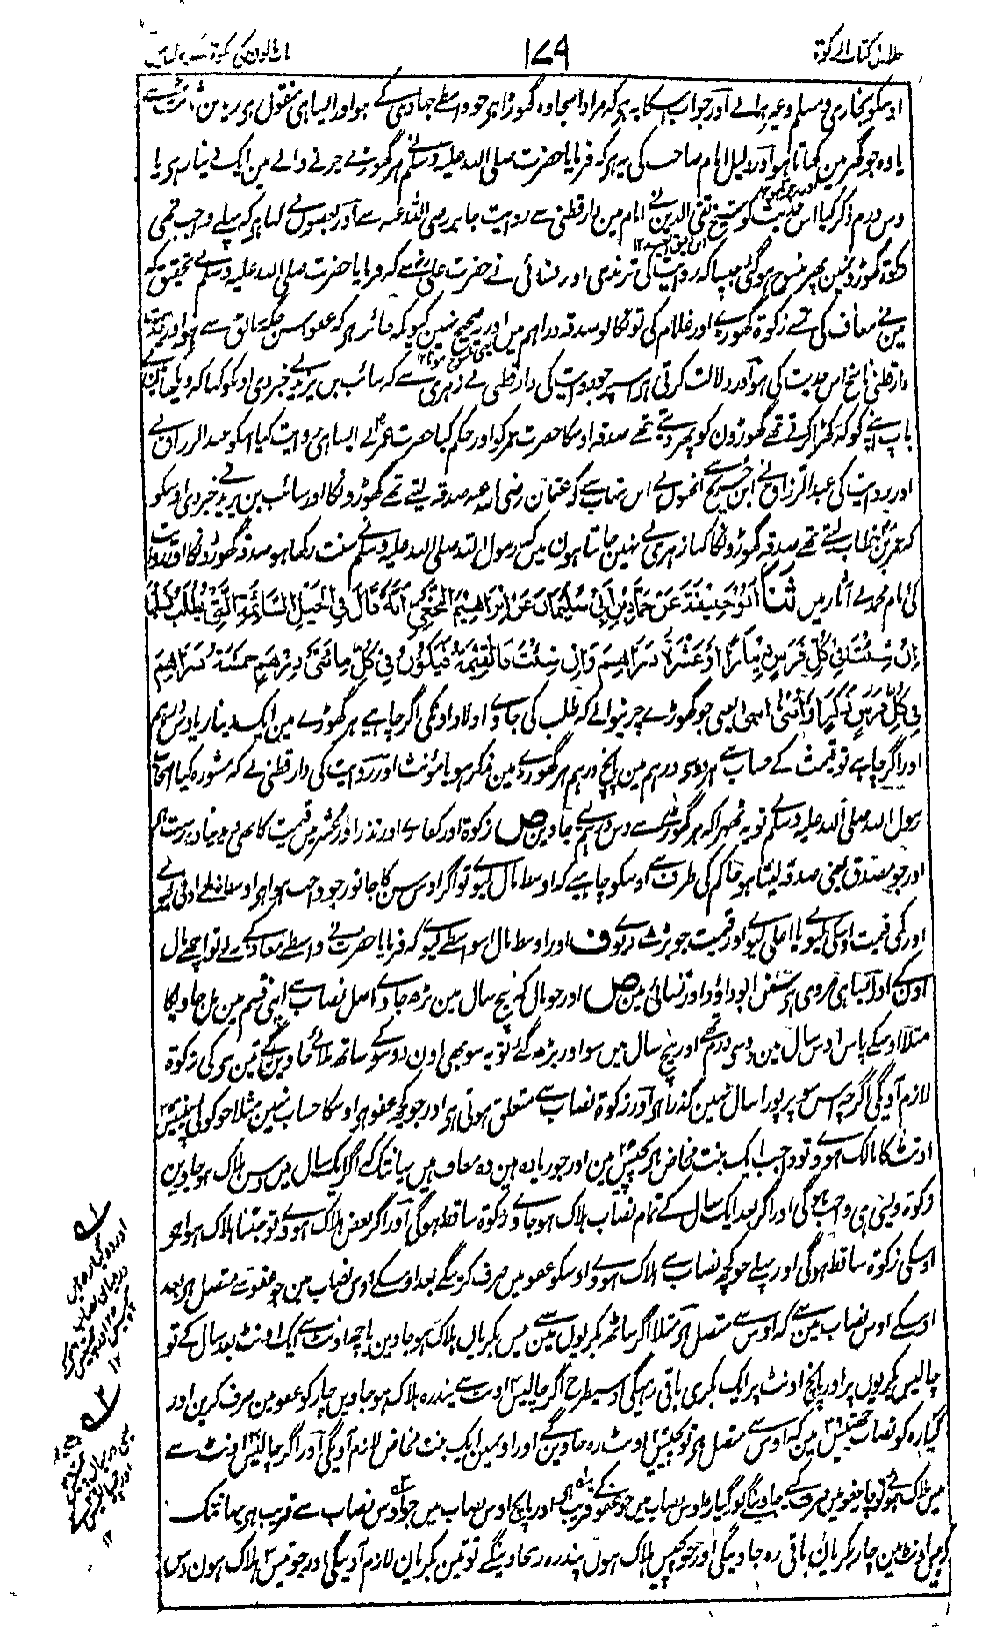 جلد اول کتاب الزکوة
۱۷۹
اوسکو بخاری و مسلم وغیرہمانے اور جواب اسکا یہ ہی کہ مراد اسجا وہ گھوڑا ہی جو واسطے جہاد ہی کے ہو اور ایسا ہی منقول ہی زید بن ثابت سے
یا وہ جو گھر مین کھاتا ہو اور دلیل امام صاحب کی یہ ہی کہ فرمایا حضرت صلی اللہ علیہ وسلم نے ہر گھوڑے چرنے والے مین ایک دینار ہی یا
دس درم ذکر کیا اس حدیث کو شیخ تقی الدین نے امام مین دارقطنی سے روایت جابر رضی اللہ عنہ سے اور بعضون نے کہا ہی کہ پہلے واجب تھی
زکوة گھوڑونمین پھر منسوخ ہوگئی جیسا کہ روایت کی ترمذی اور نسائی نے حضرت علی رض سے کہ فرمایا حضرت صلی اللہ علیہ وسلم نے تحقیق کہ
مین نے معاف کی تمسے زکوة گھوڑے اور غلام کی تو نکالو صدقہ دراہم مین اور یہ صحیح نہین کیونکہ جائز ہی کہ عفو
دارقطنی ناسخ اس حدیث کی ہو اور دلالت کرتی ہی اسپر جو روایت کی دارقطنی نے زہری سے کہ سائب بن یزید نے خبر دی اونکو کہا کہ دیکھا مین نے
باپ اپنے کو کہ کرتے تھے گھوڑون کو پھر دیتے تھے صدقہ اوسکا حضرت عمر کو اور حکم کیا حضرت عمر نے ایسا ہی روایت کیا اسکو عبد الرزاق نے
اور روایت کی عبد الرزاق نے ابن جریج سے انھون نے ابن شہاب سے کہ عثمان رضی اللہ عنہ صدقہ لیتے تھے گھوڑونکا اور سائب بن یزید نے خبر دی اوسکو
کہ عمر بن خطاب لیتے تھے صدقہ گھوڑونکا کہا زہری نے نہین جانتا ہون مین کہ رسول اللہ صلی اللہ علیہ وسلم نے سنت رکھا ہو صدقہ گھوڑونکا اور روایت
کی امام محمد نے آثار مین ثَنَا اَبُو حَنِيفَةَ عَنْ حَمَّادِ بْنِ اَبِي سُلَيْمَانَ عَنْ اِبْرَاهِيمَ النَّخَعِيِّ اَنَّهُ قَالَ فِي الْخَيْلِ السَّائِمَةِ الَّتِي يُطْلَبُ نَسْلُهَا
اِنْ شِئْتَ فِي كُلِّ فَرَسٍ دِينَارًا اَوْ عَشْرَةَ دَرَاهِمَ وَاِنْ شِئْتَ فَالْقِيمَةُ فَيَكُونُ فِي كُلِّ مِائَتَيْ دِرْهَمٍ خَمْسَةُ دَرَاهِمَ
فِي كُلِّ فَرَسٍ ذَكَرٍ اَوْ اُنْثٰى انتہی یعنی جو گھوڑے چرنیوالے کہ طلب کی جاوے اولاد اونکی اگر چاہے ہر گھوڑے مین ایک دینار یا دس درہم
اور اگر چاہے تو قیمت کے حساب سے ہر دو سو درہم مین پانچ درہم ہر گھوڑے مین مذکر ہو یا مؤنث اور روایت کی دارقطنی نے کہ مشورہ کیا اصحاب
رسول اللہ صلی اللہ علیہ وسلم نے تو یہ ٹھہرا کہ ہر گھوڑے سے دس درہم لیے جاوین ص زکوة اور کفارے اور نذر اور عشر مین قیمت کا بھی دینا درست ہی
اور جو مصدق یعنی صدقہ لیتا ہو حاکم کی طرف سے اوسکو چاہیے کہ اوسط مال لیوے تو اگر اوس سن کا جانور جو واجب ہوا ہی اوسط نہ ملے ادنی لیوے
اور کمی قیمت اوسکی لیوے یا اعلی لیوے اور قیمت جو بڑھے دیوے ف اور اوسط مال اسواسطے لیوے کہ فرمایا حضرت نے واسطے معاذ کے نہ لے تو اچھے مال
اونکے اور ایسا ہی مروی ہی سنن ابو داؤد اور نسائی مین ص اور جو مال کہ بیچ سال مین بڑھ جاوے اصل نصاب سے اپنی قسم مین مل جاویگا
مثلا اوسکے پاس اول سال مین دو سو درہم تھے اور بیچ سال مین سو اور بڑھ گئے تو یہ سو بھی اون دو سو کے ساتھ ملائے جاوینگے تین سو کی زکوة
لازم آویگی اگرچہ اس سو پر پورا سال نہین گذرا ہی اور زکوة نصاب سے متعلق ہوتی ہی اور جو کچھ عفو ہی اوسکا حساب نہین مثلا جو کوئی پینتیس
اونٹ کا مالک ہووے تو واجب ایک بنت مخاض ہی پچیس مین اور جو زیادہ ہین وہ معاف ہین یہانتک کہ اگر ایک سال مین دس ہلاک ہو جاوین
زکوة ویسی ہی واجب ہوگی اور اگر بعد ایک سال کے تمام نصاب ہلاک ہو جاوے زکوة ساقط ہوگی اور اگر بعض ہلاک ہووے تو جتنا ہلاک ہوا ہی
اوسکی زکوة ساقط ہوگی اور پہلے جو کچھ نصاب سے ہلاک ہووے اوسکو عفو مین صرف کرینگے بعد اوسکے اوس نصاب مین جو عفو سے متصل ہی بعد
اوسکے اوس نصاب مین کہ اوس سے متصل ہی مثلا اگر ساٹھ بکریون مین سے بیس بکریان ہلاک ہو جاوین یا چھ اونٹ سے ایک اونٹ بعد سال کے تو
چالیس بکریون پر اور پانچ اونٹ پر ایک بکری باقی رہیگی اوسیطرح اگر چالیس اونٹ سے پندرہ ہلاک ہو جاوین چار کو عفو مین صرف کرین اور
گیارہ کو نصاب چھتیس مین کہ اوس سے متصل ہی تو پچیس اونٹ رہ جاوینگے اور اوسمین ایک بنت مخاض لازم آویگی اور اگر چالیس اونٹ سے
بیس ہلاک ہوئے تو چار عفو مین صرف کیے جاوینگے اور گیارہ اوس نصاب مین جو عفو کے قریب ہی اور پانچ اوس نصاب مین جو اوس نصاب سے قریب ہی یہانتک
کہ بیس اونٹ مین چار بکریان باقی رہ جاوینگی اور جو پچیس ہلاک ہون پندرہ رہجاوینگے تو تین بکریان لازم آوینگی اور جو تیس ہلاک ہون دس